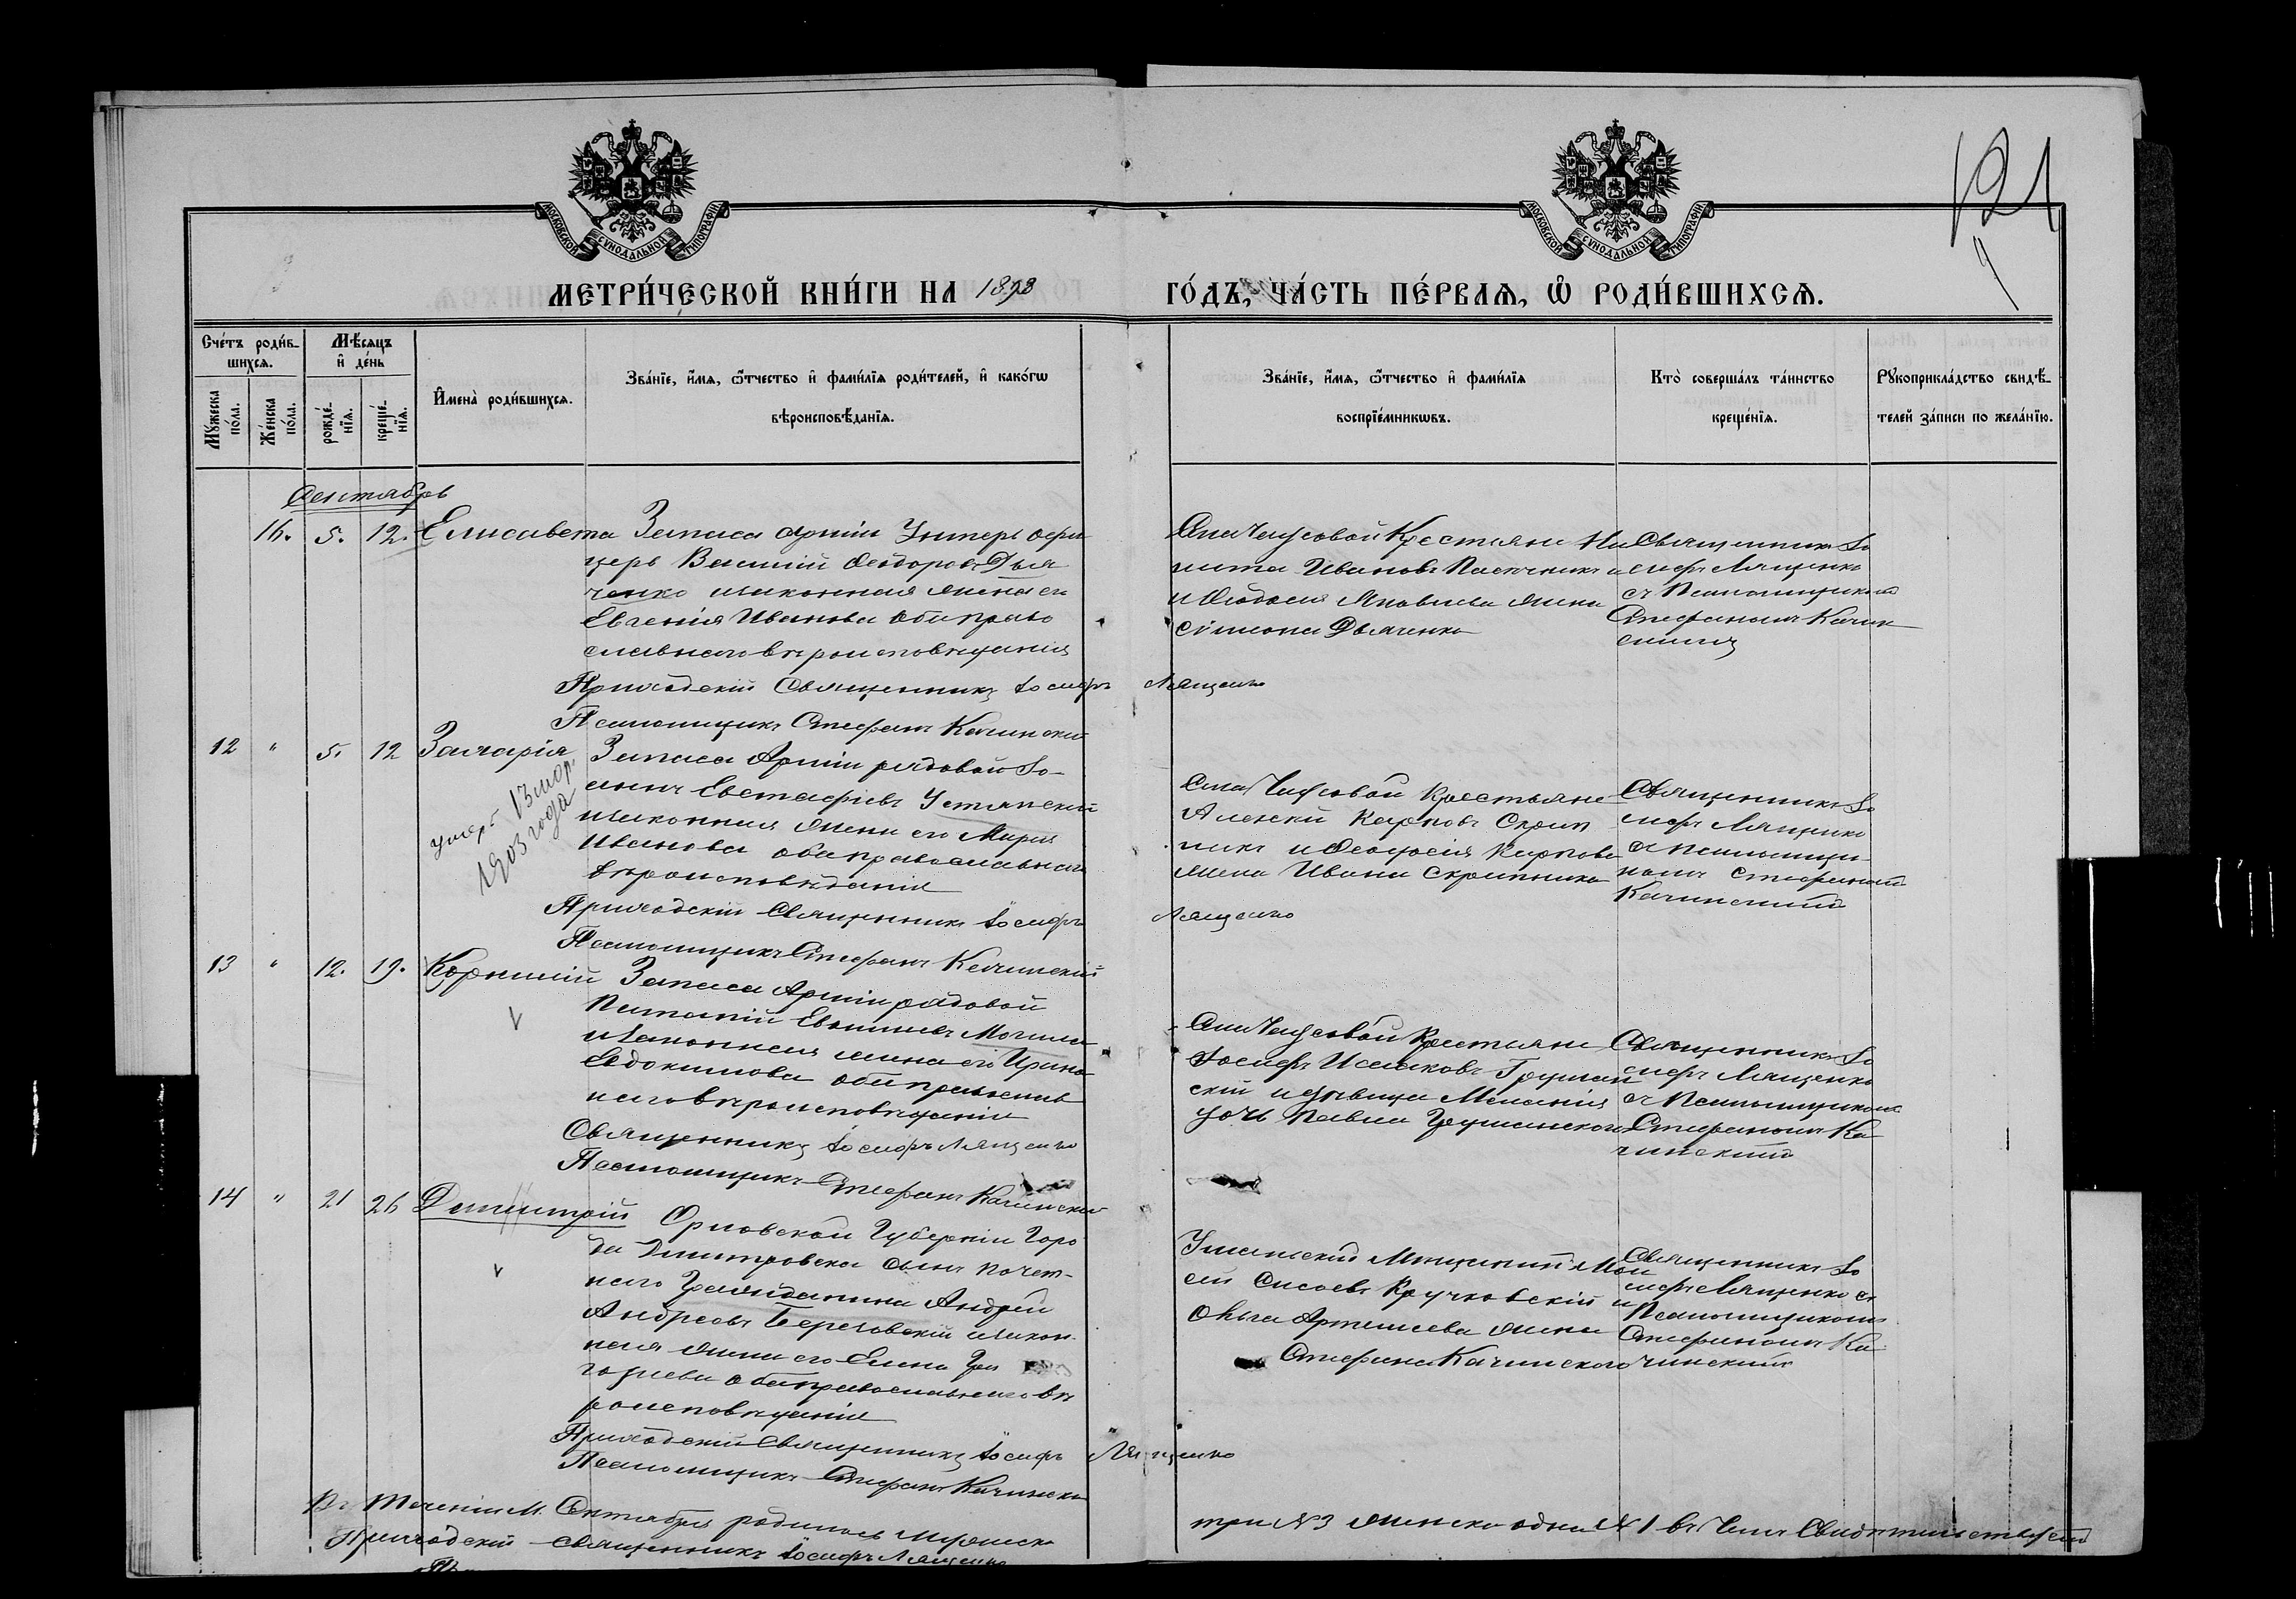 121
МОСКОВСКОЙ СУНОДАЛЬНОЙ ТИПОГРАФІИ
МОСКОВСКОЙ СУНОДАЛЬНОЙ ТИПОГРАФІИ
МЕТРИ́ЧЕСКОЙ КНИ́ГИ НА 1898
ГО́ДЪ, ЧА́СТЬ ПЕ́РВАѦ, Ѽ РОДИ́ВШИХСѦ.
Сче́тъ роди́в-
шихсѧ.
Мѣ́сѧцъ
и҆ де́нь
Мꙋ́жеска
по́ла.
Же́нска
по́ла.
рожде́-
нїѧ.
креще́-
нїѧ.
И҆мена̀ роди́вшихсѧ.
Зва́нїе, и҆́мѧ, ѻ҆́тчество и҆ фами́лїѧ роди́телей, и҆ како́гѡ
вѣроисповѣ́данїѧ.
Зва́нїе, и҆́мѧ, ѻ҆́тчество и҆ фами́лїѧ
воспрїе́мникѡвъ.
Кто̀ соверша́лъ та́инство
креще́нїѧ.
Рꙋкоприкла́дство свидѣ́-
телей за́писи по жела́нїю.
Сентябрь
16. 5. 12. Елисавета
Запаса арміи Унтеръ офи
церъ Василій Ѳеодоровъ Дья
ченко и законная жена его
Евгенія Иванова оба право
славнаго вѣроисповѣданія
Приходскій Священникъ Іосифъ Лященко
Псаломщикъ Стефанъ Качинскій
Крестьяне Ни
кита Ивановъ Пасѣчникъ
и Ѳеодосія Яковлева жена
Симеона Дьяченка
Священникъ Іо
сифъ Лященко
съ Псаломщикомъ
Стефаномъ Качин
скимъ
12 " 5. 12 Захарія
умеръ 13 мар.
1903 года
Запаса Арміи рядовой Іо-
Евстафіевъ Устянскій
и законная жена его Марія
Иванова оба православнаго
вѣроисповѣданія
Приходскій Священникъ Іосифъ Лященко
Псаломщикъ Стефанъ Качинскій
Крестьяне
Алексій Карповъ Скрип
никъ и Карпова
жена Ивана Скрипника
Священникъ Іо
сифъ Лященко
съ псаломщи-
комъ Стефаномъ
Качинскимъ
13 " 12. 19. Корнилій
Запаса Арміи рядовой
Могила
и законная жена его Ирина
Евдокимова оба православ
наго вѣроисповѣданія
Священникъ Іосифъ Лященко
Псаломщикъ Стефанъ Качинскій
Крестьяне
Іосифъ Исааковъ Грушан
скій и дѣвица Меланія
дочь Павла Грушанскаго
Священникъ Іо
сифъ Лященко
съ Псаломщикомъ
Стефаномъ Ка
чинскимъ
14 " 21 26 Димитрій
Орловской Губерніи Горо
да Дмитровска сынъ почет-
наго Гражданина Андрей
Андреевъ Береговскій и закон
ная жена его Елена Гри
горьева оба православнаго вѣ
роисповѣданія
Приходскій Священникъ Іосифъ Лященко
Псаломщикъ Стефанъ Качинскій
Уманскій Мѣщанинъ Мои
сей Сисоевъ Кручковскій и
Ольга Артемьева жена
Стефана Качинского
Священникъ Іо
сифъ Лященко съ
Псаломщикомъ
Стефаномъ Ка
чинскимъ
Въ теченіи М. Сентября родилось мужеска
три №3 женска одна №1 въ чемъ свидѣтельствуемъ
Приходскій священникъ Іосифъ Лященко